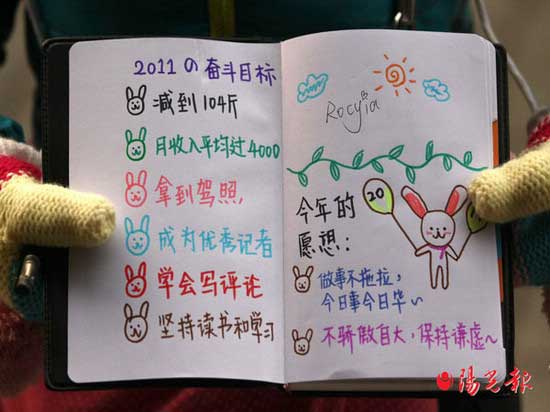 2011の奋斗目标
减到104斤
月收入平均过4000
拿到驾照,
成为优秀记者
学会写评论
坚持读书和学习
Rocyia
今年的
愿想:
20
做事不拖拉,
今日事今日毕~
不骄傲自大,保持谦虚~
陽光報